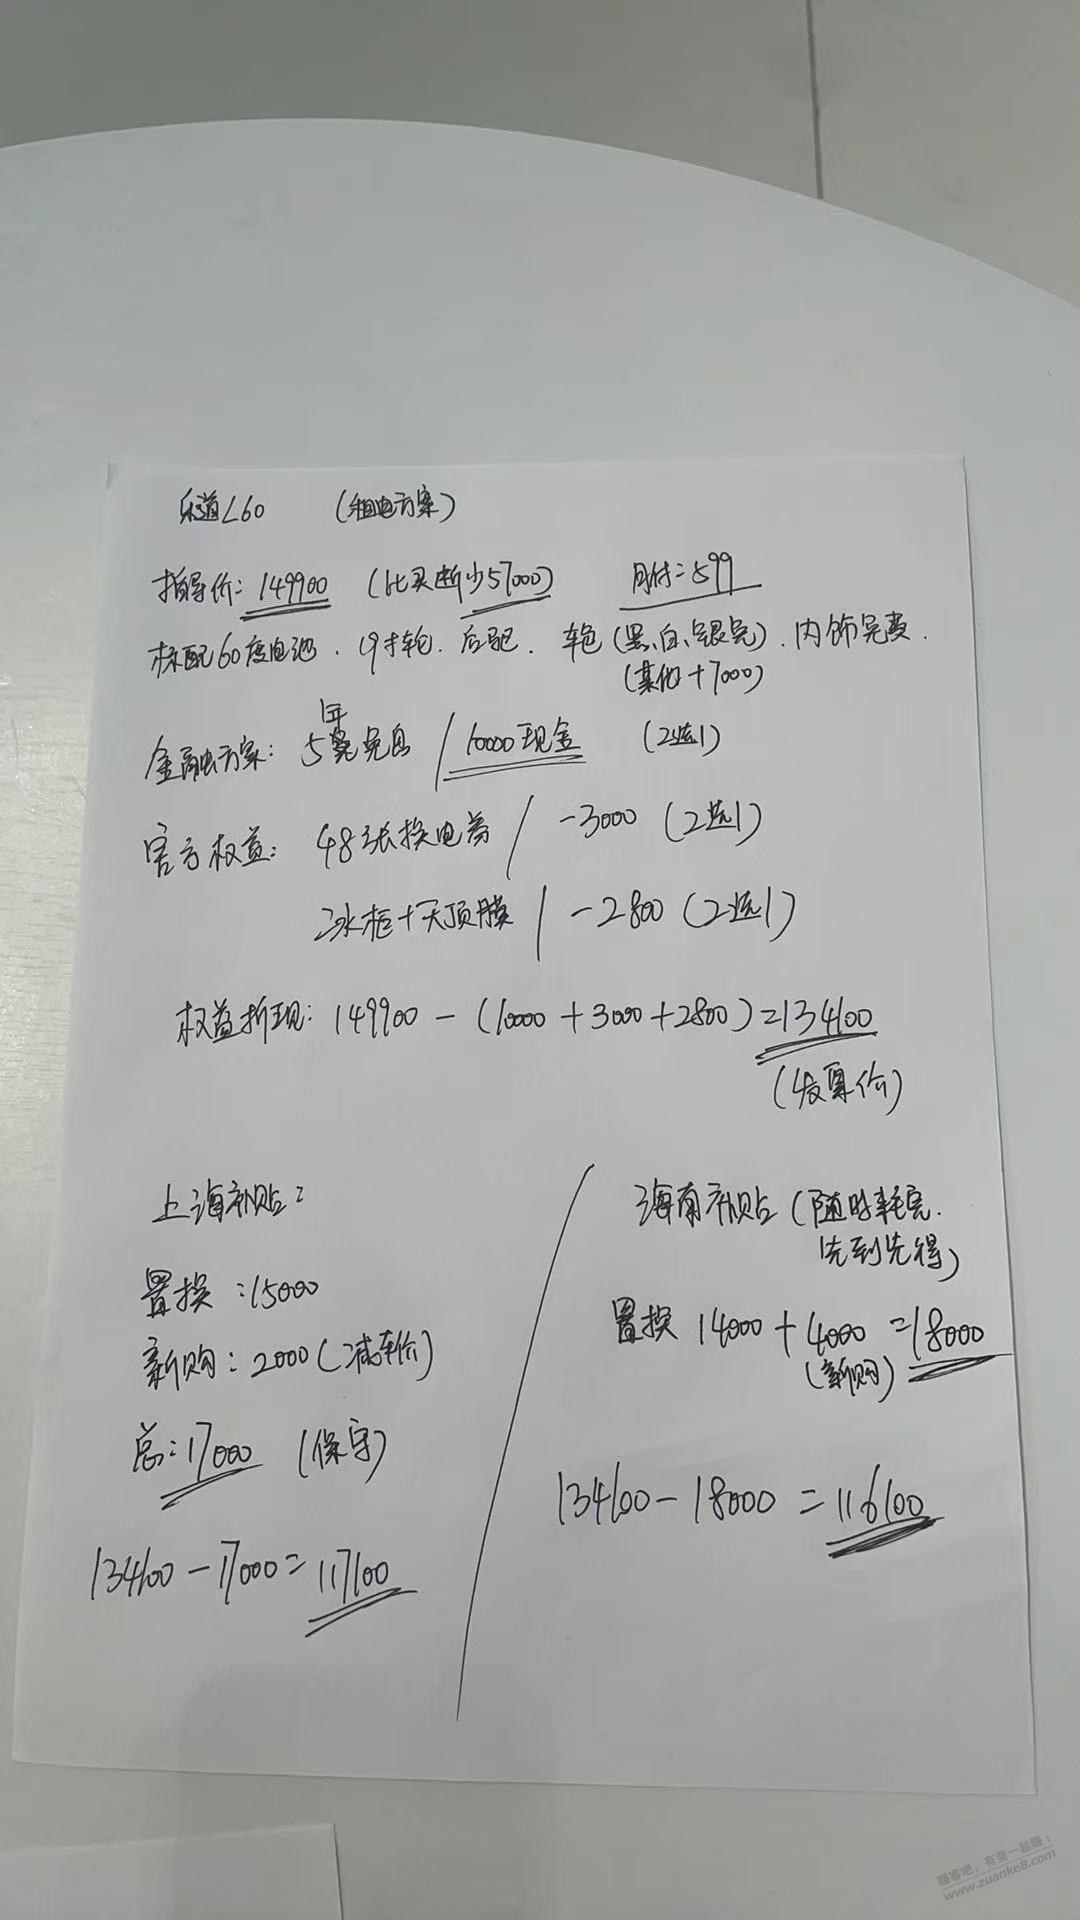 乐道L60 (租电方案)
指导价: 149900 (比买断少57000) 月付:599
标配60度电池、19寸轮、后驱、车色(黑、白、银免)、内饰免费.
(其他+7000)
年
金融方案: 5免息 / 10000现金 (2选1)
官方权益: 48张换电券 / -3000 (2选1)
冰柜+天顶膜 / -2800 (2选1)
权益折现: 149900-(10000+3000+2800)=134100
(发票价)
上海补贴:
置换:15000
新购:2000(减车价)
总:17000 (保守)
134100-17000=117100
海南补贴(随时耗完.
先到先得)
置换 14000+4000=18000
(新购)
134100-18000=116100
赚客吧,有奖一起赚!
www.zuanke8.com